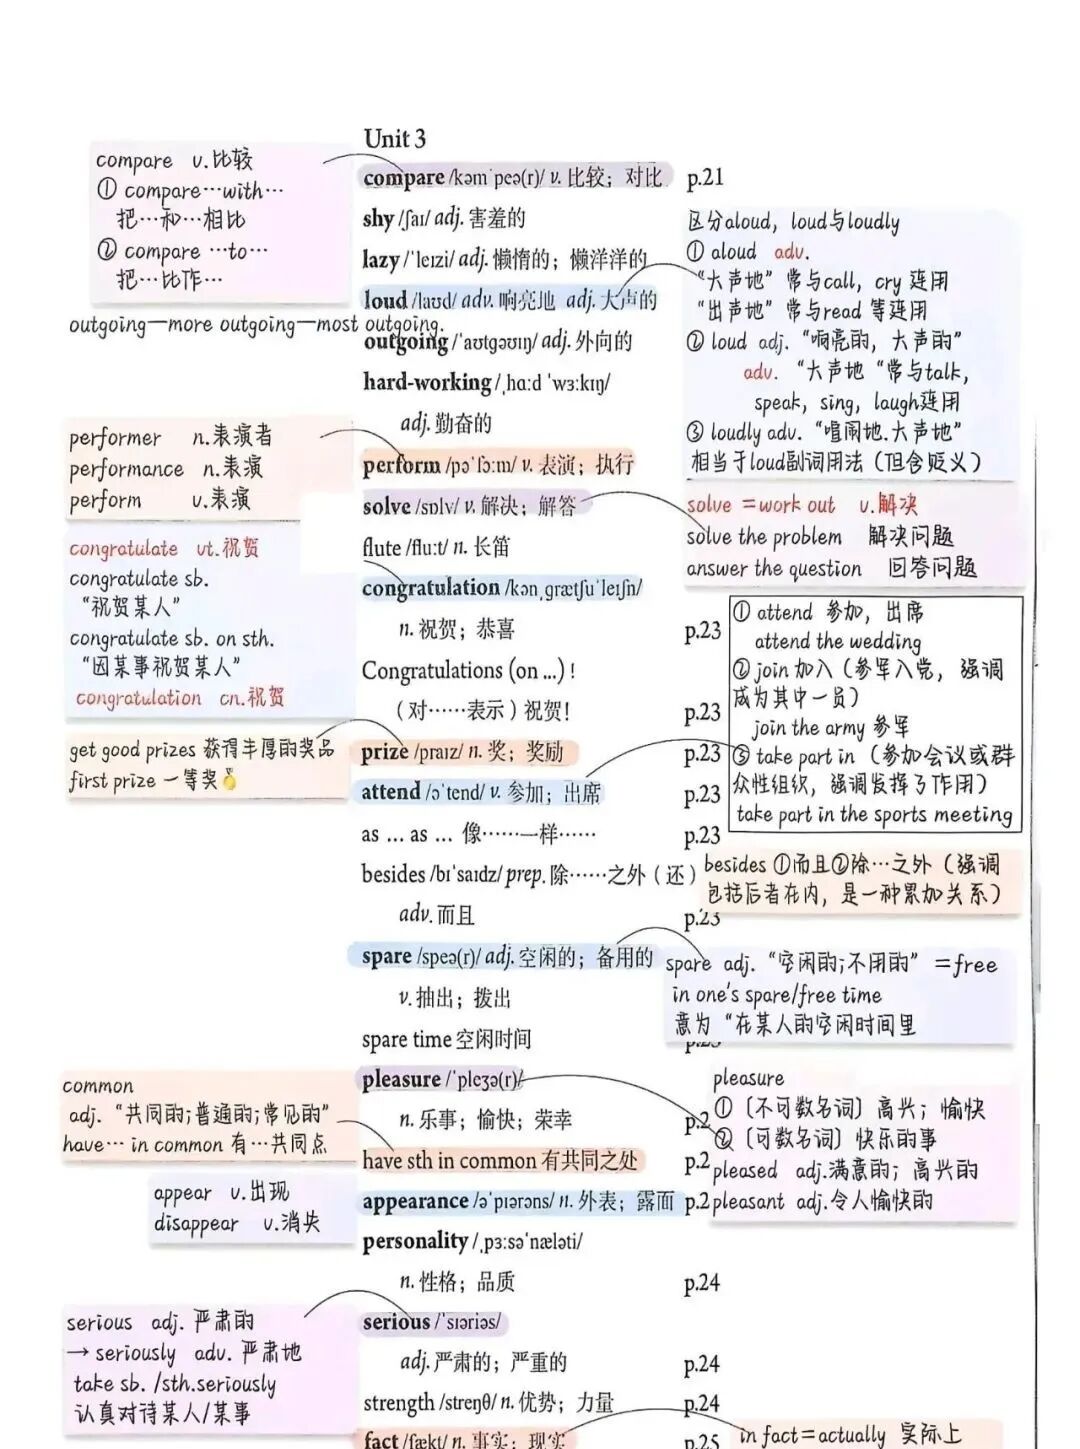 Unit 3
compare v.比较
① compare…with…
把…和…相比
② compare …to…
把…比作…
compare /kəmˈpeə(r)/ v. 比较；对比 p.21
shy /ʃaɪ/ adj. 害羞的
lazy /ˈleɪzi/ adj. 懒惰的；懒洋洋的
loud /laʊd/ adv. 响亮地 adj. 大声的
区分aloud, loud与loudly
① aloud adv.
“大声地”常与call, cry 连用
“出声地”常与read 等连用
② loud adj. “响亮的, 大声的”
adv. “大声地 “常与talk,
speak, sing, laugh连用
③ loudly adv. “喧闹地.大声地”
相当于loud副词用法（但含贬义）
outgoing—more outgoing—most outgoing.
outgoing /ˈaʊtɡəʊɪŋ/ adj. 外向的
hard-working /ˌhɑːd ˈwɜːkɪŋ/
adj. 勤奋的
performer n.表演者
performance n.表演
perform v.表演
perform /pəˈfɔːm/ v. 表演；执行
solve /sɒlv/ v. 解决；解答
solve =work out v.解决
solve the problem 解决问题
answer the question 回答问题
flute /fluːt/ n. 长笛
congratulate vt.祝贺
congratulate sb.
“祝贺某人”
congratulate sb. on sth.
“因某事祝贺某人”
congratulation cn.祝贺
congratulation /kənˌɡrætʃuˈleɪʃn/
n. 祝贺；恭喜 p.23
Congratulations (on ...)！
（对……表示）祝贺！ p.23
① attend 参加, 出席
attend the wedding
② join 加入（参军入党, 强调
成为其中一员）
join the army 参军
③ take part in （参加会议或群
众性组织, 强调发挥了作用）
take part in the sports meeting
get good prizes 获得丰厚的奖品
first prize 一等奖🏅
prize /praɪz/ n. 奖；奖励 p.23
attend /əˈtend/ v. 参加；出席 p.23
as ... as ... 像……一样…… p.23
besides /bɪˈsaɪdz/ prep. 除……之外（还）
adv. 而且 p.23
besides ①而且②除…之外（强调
包括后者在内, 是一种累加关系）
spare /speə(r)/ adj. 空闲的；备用的
v. 抽出；拨出
spare adj. “空闲的;不用的” =free
in one's spare/free time
意为 “在某人的空闲时间里
spare time 空闲时间
pleasure /ˈpleʒə(r)/
n. 乐事；愉快；荣幸 p.2
pleasure
①〔不可数名词〕高兴; 愉快
②〔可数名词〕快乐的事
pleased adj.满意的; 高兴的
pleasant adj.令人愉快的
common
adj. “共同的;普通的;常见的”
have… in common 有…共同点
have sth in common 有共同之处 p.2
appear v.出现
disappear v.消失
appearance /əˈpɪərəns/ n. 外表；露面 p.2
personality /ˌpɜːsəˈnæləti/
n. 性格；品质 p.24
serious adj. 严肃的
→ seriously adv. 严肃地
take sb. /sth.seriously
认真对待某人/某事
serious /ˈsɪəriəs/
adj. 严肃的；严重的 p.24
strength /streŋθ/ n. 优势；力量 p.24
fact /fækt/ n. 事实；现实 p.25
in fact=actually 实际上